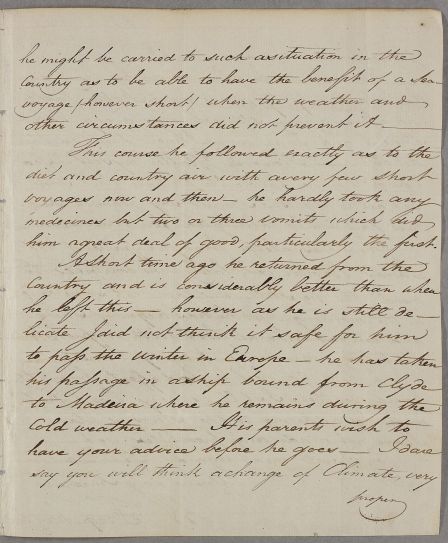 he might be carried to such a situation in the
Country as to be able to have the benefit of a sea
voyage /however short/ when the weather and
other circumstances did not prevent it —
This course he followed exactly as to the
diet and country air with a very few short
voyages now and then — he hardly took any
medecines but two or three vomits which did
him a great deal of good, particularly the first.
A short time ago he returned from the
Country and is considerably better than when
he left this — however as he is still de-
licate I did not think it safe for him
to pass the winter in Europe — he has taken
his passage in a ship bound from Clyde
to Madeira where he remains during the
Cold weather — His parents wish to
have your advice before he goes — I dare
say you will think a change of Climate, very
proper